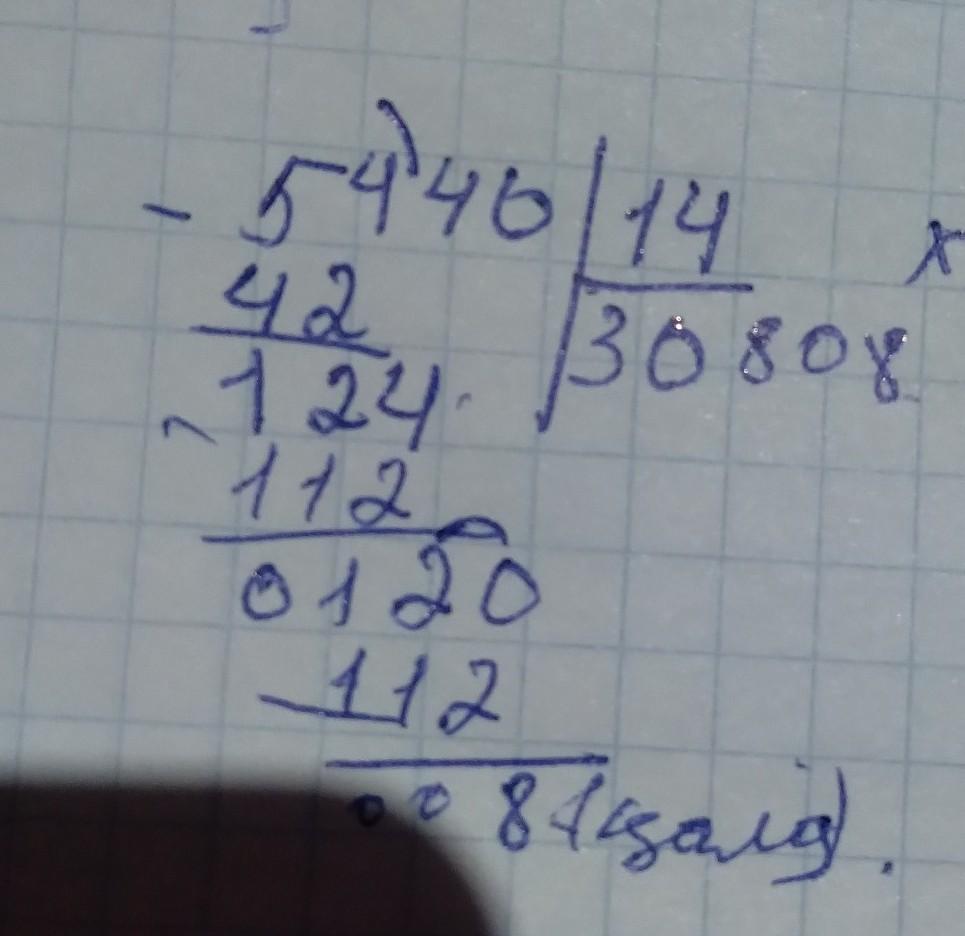 - 5440 14 x
42 30808
124
- 112
0120
- 112
008 (цалд).